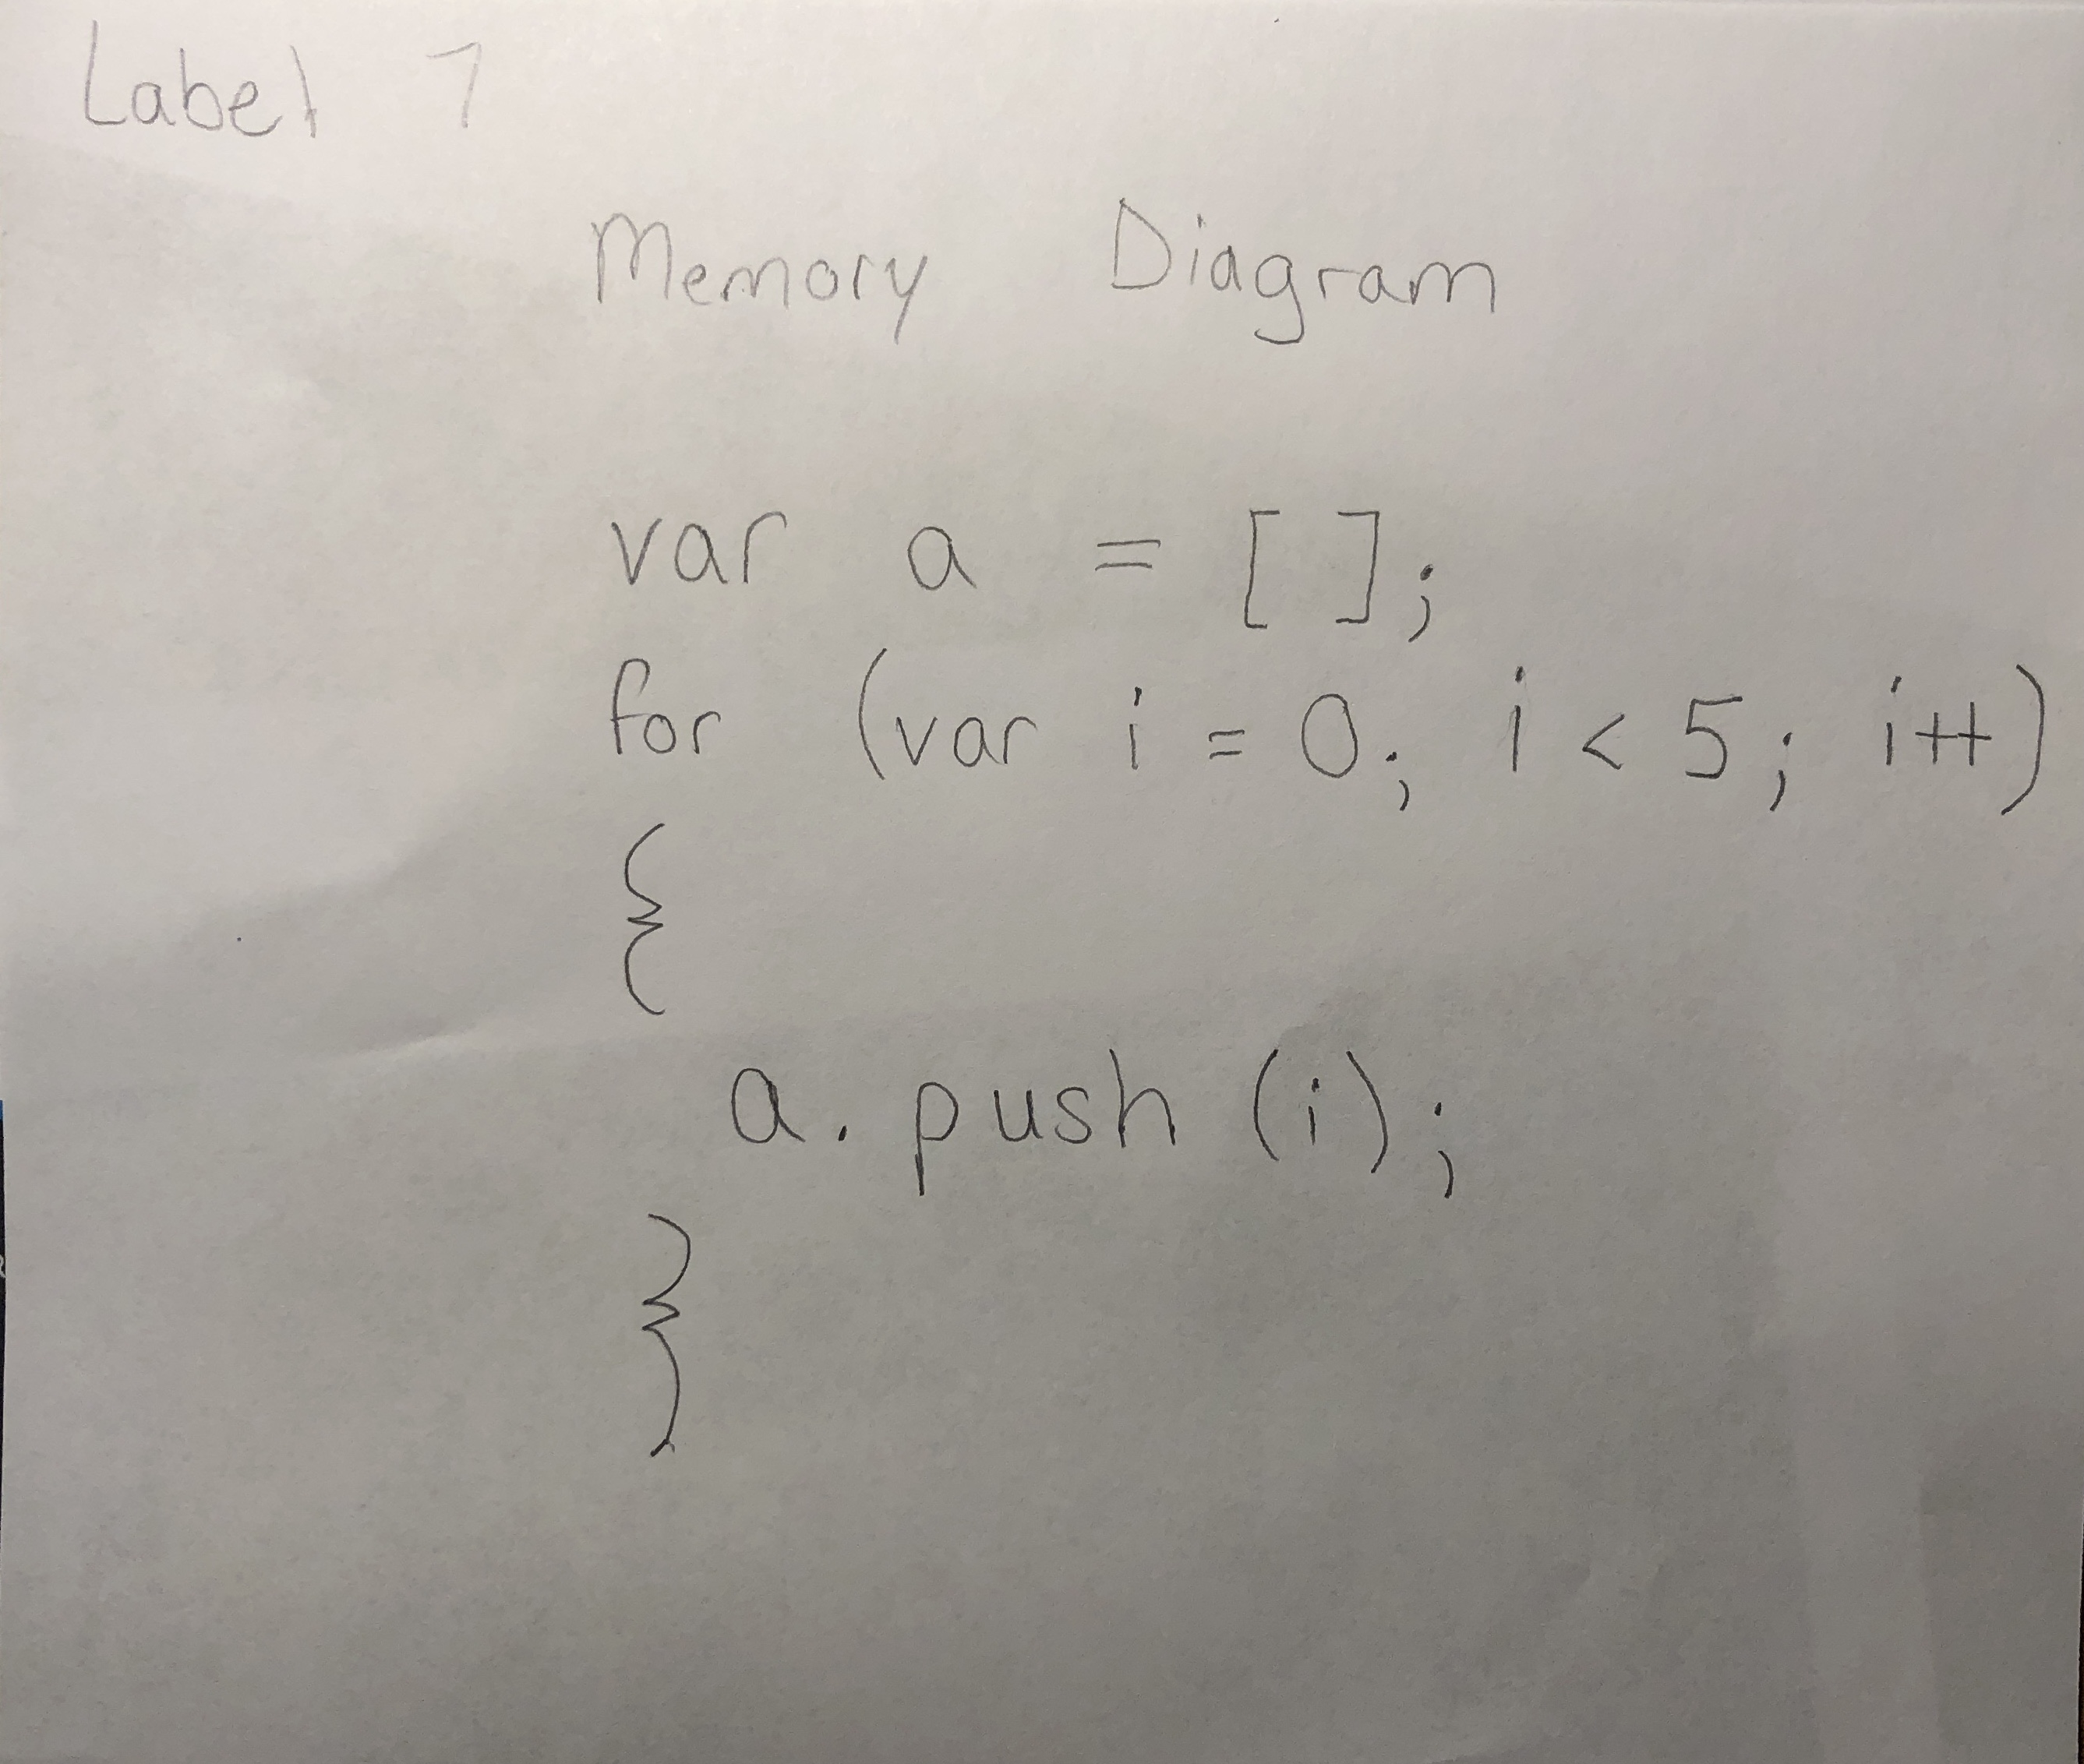 Label 1
Memory Diagram
var a = [ ];
for (var i = 0; i < 5; i++)
{
a. push (i);
}